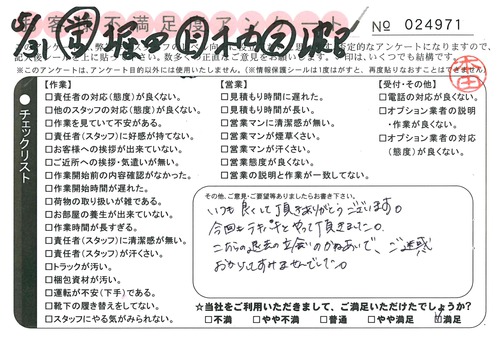 客 不満足度アンケート
No 024971
記入後シールを上に貼ってさい。数多くの正直なご意見をお願いします。
※このアンケートは、アンケート目的以外には使用いたしません。(※情報保護シールは1度はがすと、再度貼りなおすことはできません。)
チェックリスト
【作業】
□責任者の対応(態度)が良くない。
□他のスタッフの対応(態度)が良くない。
□作業を見ていて不安がある。
□責任者(スタッフ)に好感が持てない。
□お客様への挨拶が出来ていない。
□ご近所への挨拶・気遣いが無い。
□作業開始前の内容確認がなかった。
□作業開始時間が遅れた。
□荷物の取り扱いが雑である。
□お部屋の養生が出来ていない。
□作業時間が長すぎる。
□責任者(スタッフ)に清潔感が無い。
□責任者(スタッフ)が汗くさい。
□トラックが汚い。
□梱包資材が汚い。
□運転が不安(下手)である。
□靴下の履き替えをしてない。
□スタッフにやる気がみられない。
【営業】
□見積もり時間に遅れた。
□見積もり時間が長い。
□営業マンに清潔感が無い。
□営業マンが煙草くさい。
□営業マンが汗くさい。
□営業態度が良くない。
□営業の説明と作業が一致してない。
【受付・その他】
□電話の対応が良くない。
□オプション業者の説明
・作業が良くない。
□オプション業者の対応
(態度)が良くない。
その他、ご意見・ご要望等ありましたらお書き下さい。
いつも良くして頂きありがとうございます。
今回もテキパキとやって頂きました。
こちらの退去の立会いのかねあいで、ご迷惑
おかけしてすみませんでした。
★当社をご利用いただきまして、ご満足いただけたでしょうか?
□不満 □やや不満 □普通 □やや満足 ☑満足